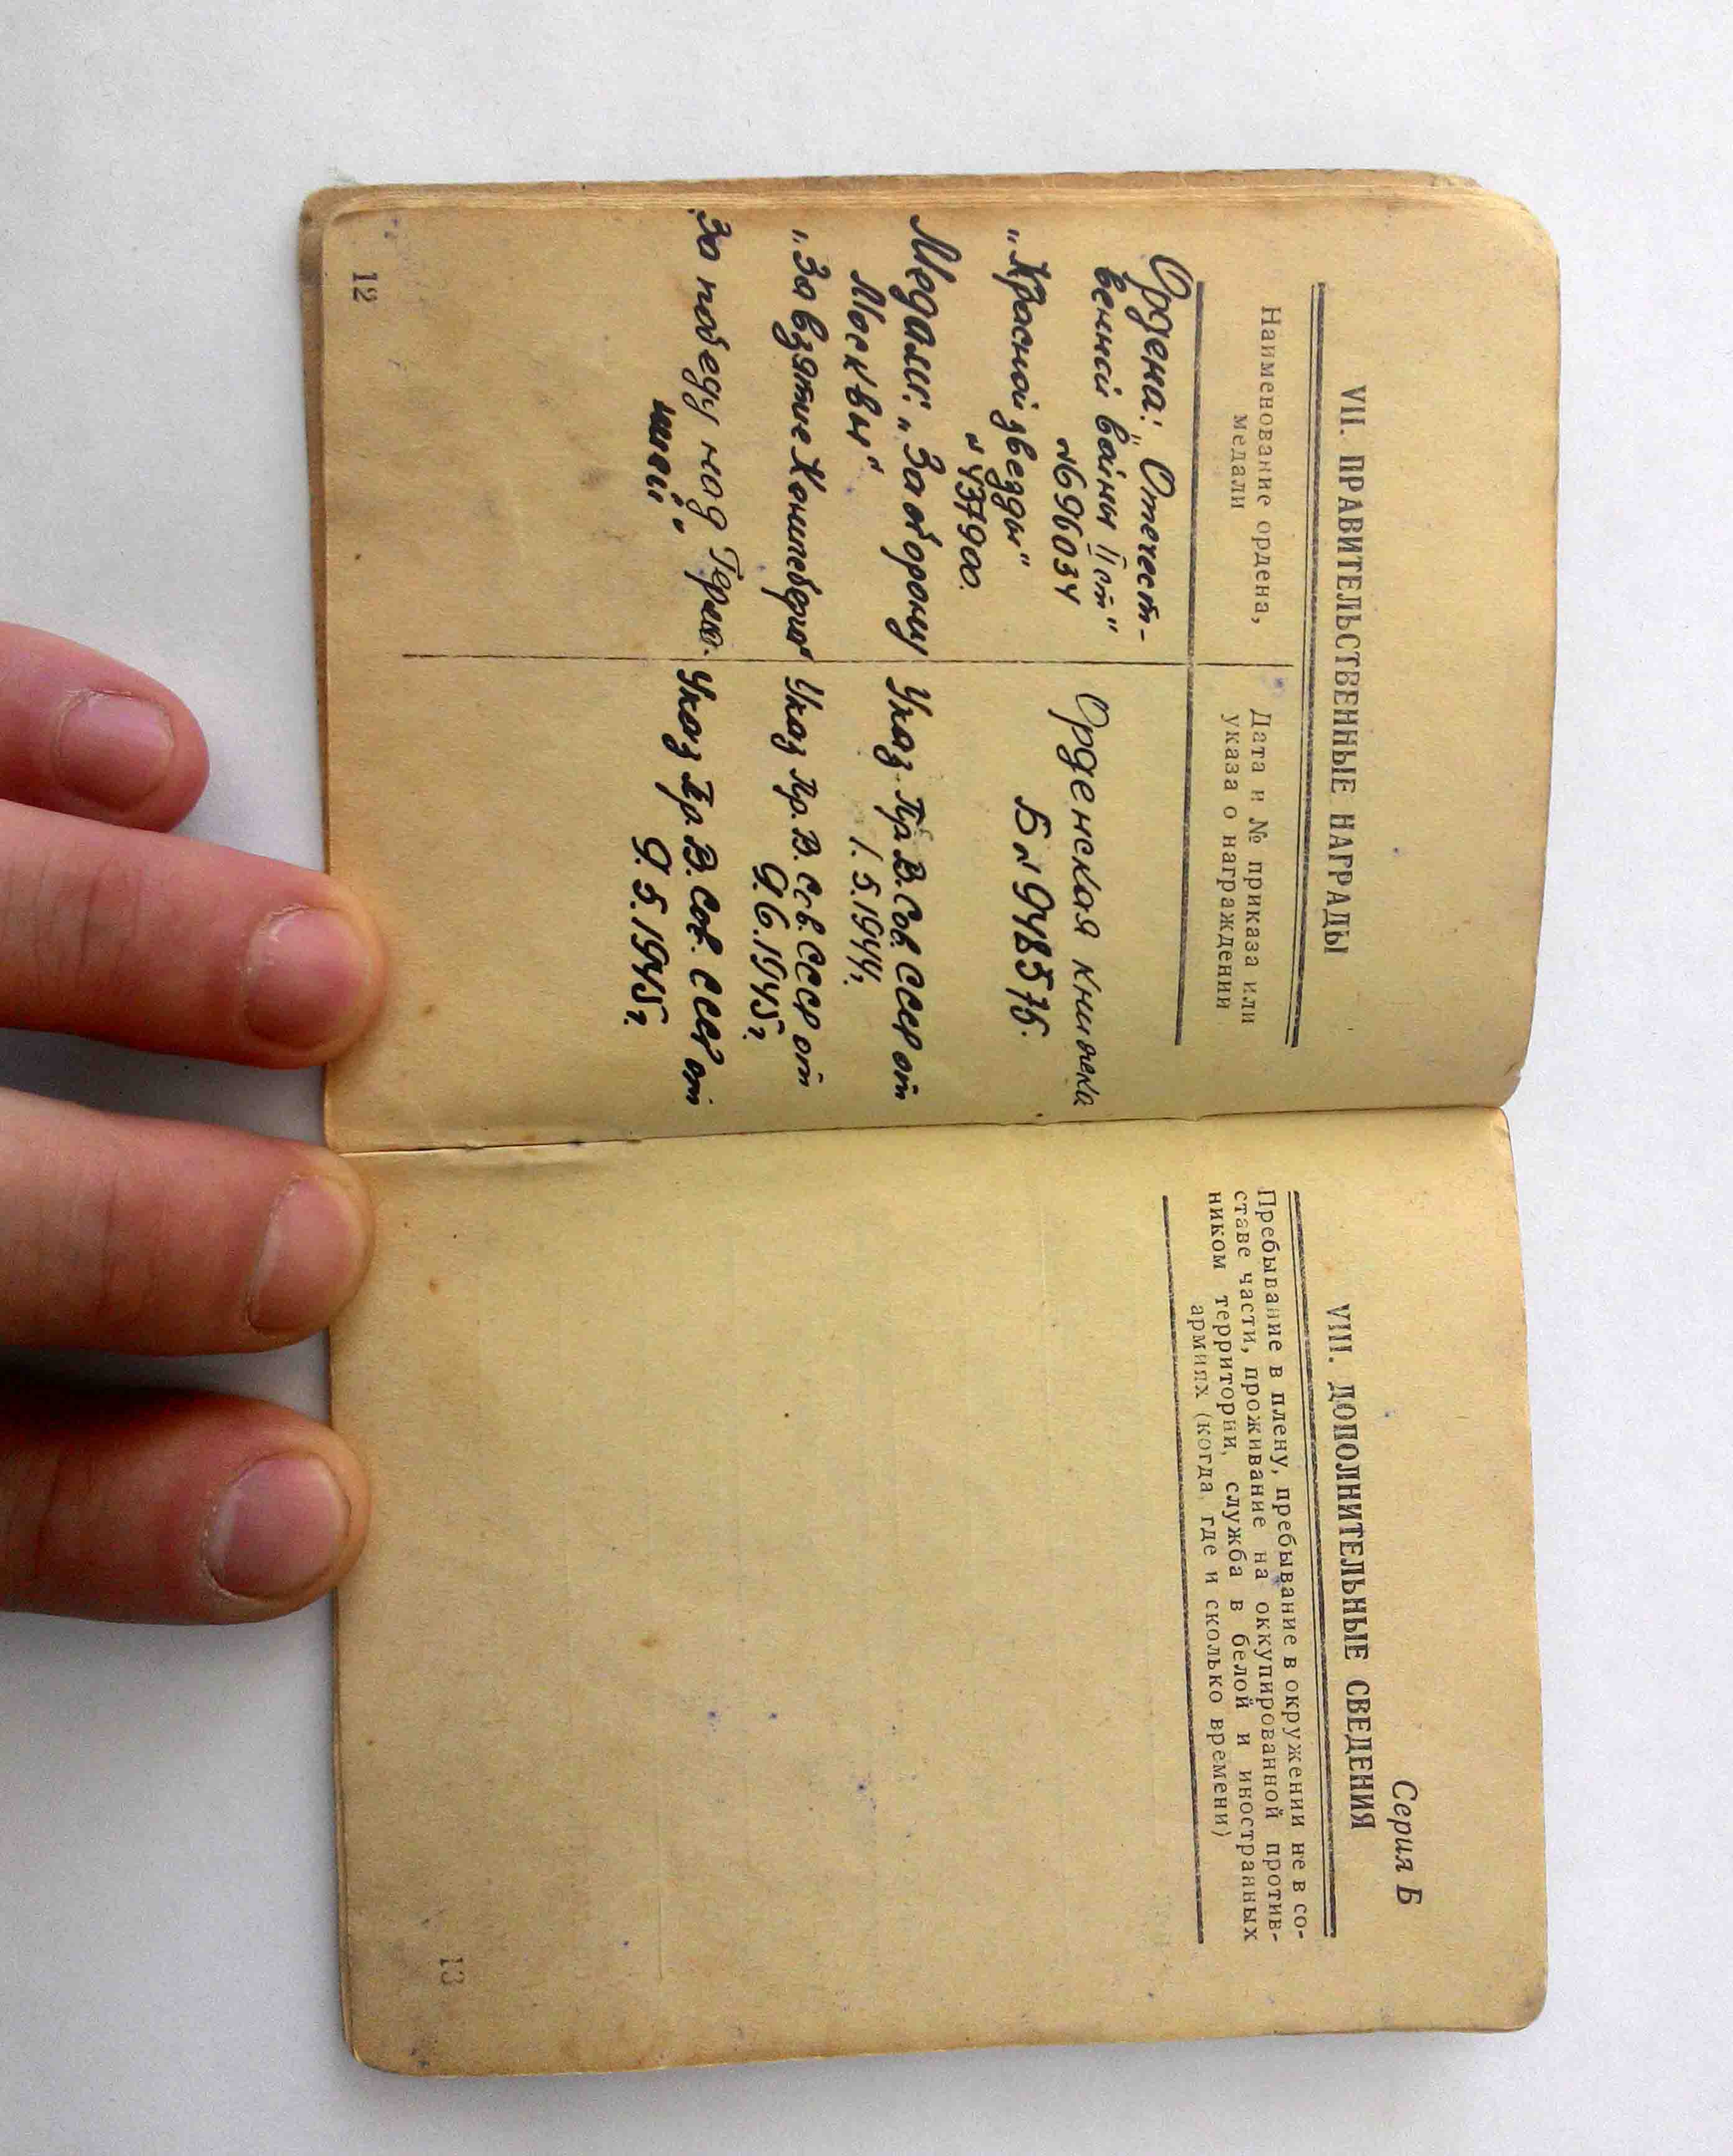 VII. ПРАВИТЕЛЬСТВЕННЫЕ НАГРАДЫ
Наименование ордена,
медали
Дата и № приказа или
указа о награждении
Ордена: „Отечест-
венной войны II ст"
№696034
„Красной звезды"
№437900.
Орденская книжка
Б №948575.
Медали: „За оборону
Москвы"
Указ Пр. В. Сов. СССР от
1.5.1944г.
„За взятие Кенигсберга"
Указ Пр. В. Сов. СССР от
9.6.1945г.
„За победу над Герма-
нией".
Указ Пр. В. Сов. СССР от
9.5.1945г.
12
Серия Б
VIII. ДОПОЛНИТЕЛЬНЫЕ СВЕДЕНИЯ
Пребывание в плену, пребывание в окружении не в со-
ставе части, проживание на оккупированной против-
ником территории, служба в белой и иностранных
армиях (когда, где и сколько времени)
13